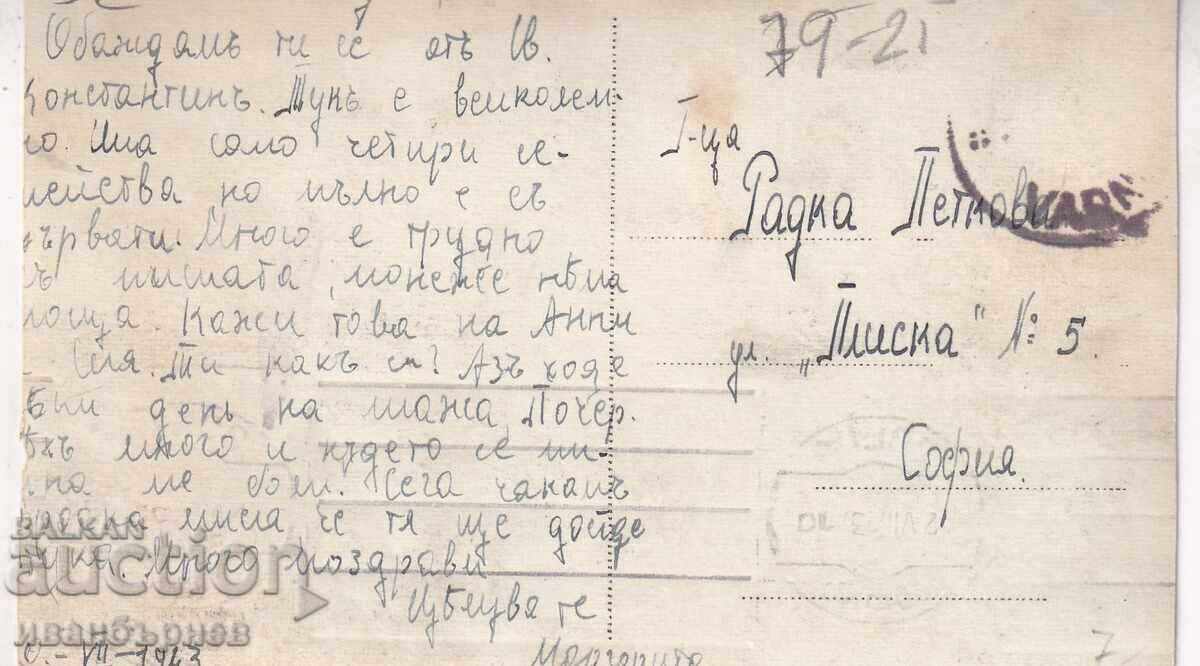 Обаждамъ ти се отъ Св.
Константинъ. Тукъ е великолеп-
но. Има само четири се-
мейства но пълно е съ
хървати. Много е трудно
съ пишата, понеже нѣма
поща. Кажи това на Анпи
Оля. Ти какъ си? Азъ ходя
всѣки день на плажа. Почер-
нѣхъ много и където се пи-
пна ме боли. Сега чакаме
цица че тя ще дойде
тукъ. Много поздрави
Цѣлува те
Маргарита
VII-1943
79-21
Г-ца
Радка Петкова
ул. „Плиска" №: 5.
София.
7
BALKAN
auction
иванбърнев